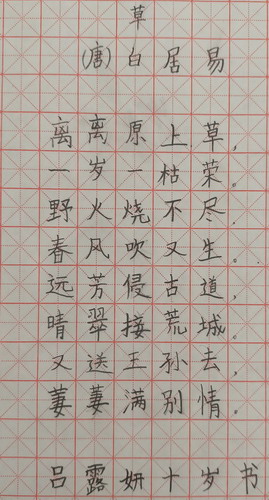 草
(唐)白居易
离离原上草，
一岁一枯荣。
野火烧不尽．
春风吹又生。
远芳侵古道，
晴翠接荒城。
又送王孙去，
萋萋满别情。
吕露妍十岁书